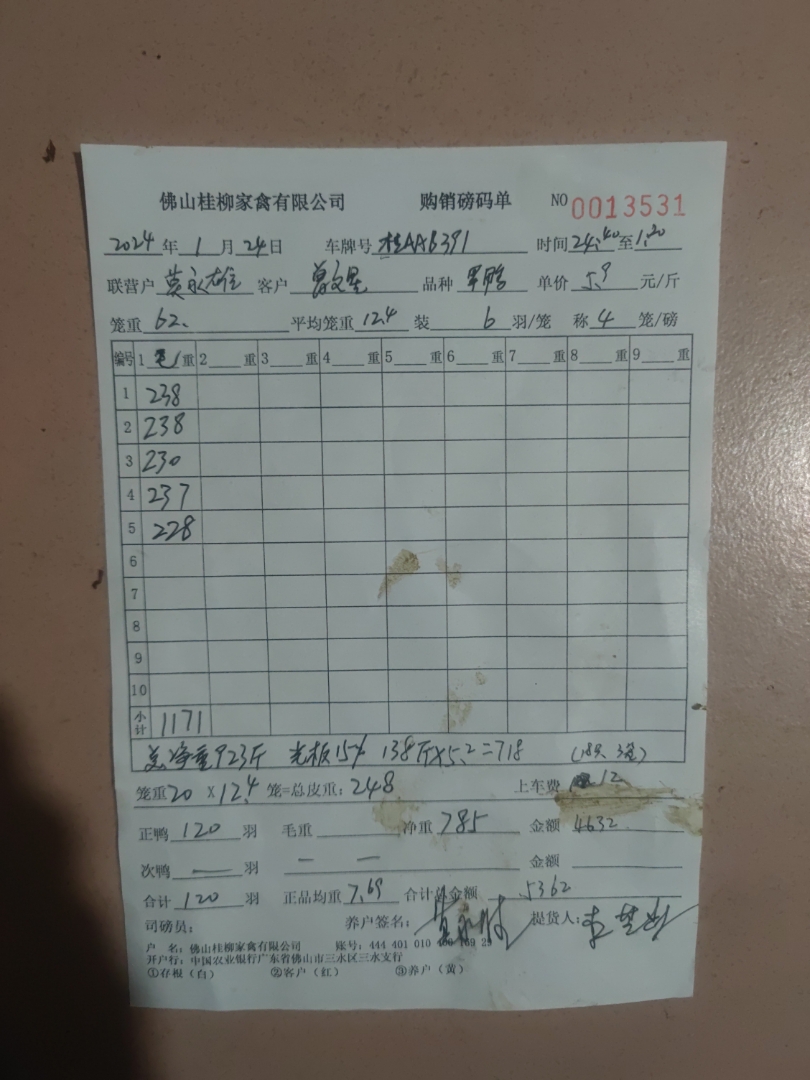 佛山桂柳家禽有限公司 购销磅码单 NO 0013531
2024 年 1 月 24 日 车牌号 桂AA6391 时间 24:40 至 1:20
联营户 莫永雄 客户 品种 单价 5.9 元/斤
笼重 62. 平均笼重 12.4 装 6 羽/笼 称 4 笼/磅
编号 1 毛 重 2 重 3 重 4 重 5 重 6 重 7 重 8 重 9 重
1 238
2 238
3 230
4 237
5 228
6
7
8
9
10
小计 1171
总净重923斤 光板15% 138斤×5.2=718
笼重 20 × 12.4 笼=总皮重: 248 上车费 12
正鸭 120 羽 毛重 净重 785 金额 4632
次鸭 — 羽 — — 金额
合计 120 羽 正品均重 7.69 合计总金额 5362
司磅员: 养户签名: 提货人:
户 名: 佛山桂柳家禽有限公司 账号: 444 401 010
开户行: 中国农业银行广东省佛山市三水区三水支行
①存根(白) ②客户(红) ③养户(黄)